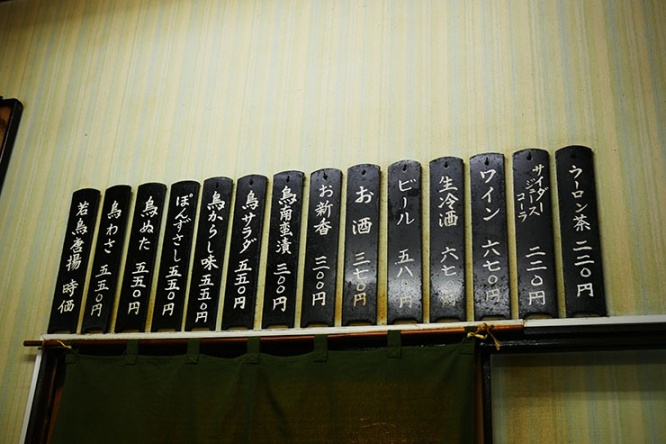 ウーロン茶 二二〇円
サイダー
ジュース
コーラ
二二〇円
ワイン 六七〇円
生冷酒 六七〇円
ビール 五八〇円
お酒 三七〇円
お新香 三〇〇円
鳥南蛮漬 三〇〇円
鳥サラダ 五五〇円
鳥からし味 五五〇円
ぽんずさし 五五〇円
鳥ぬた 五五〇円
鳥わさ 五五〇円
若鳥唐揚 時価